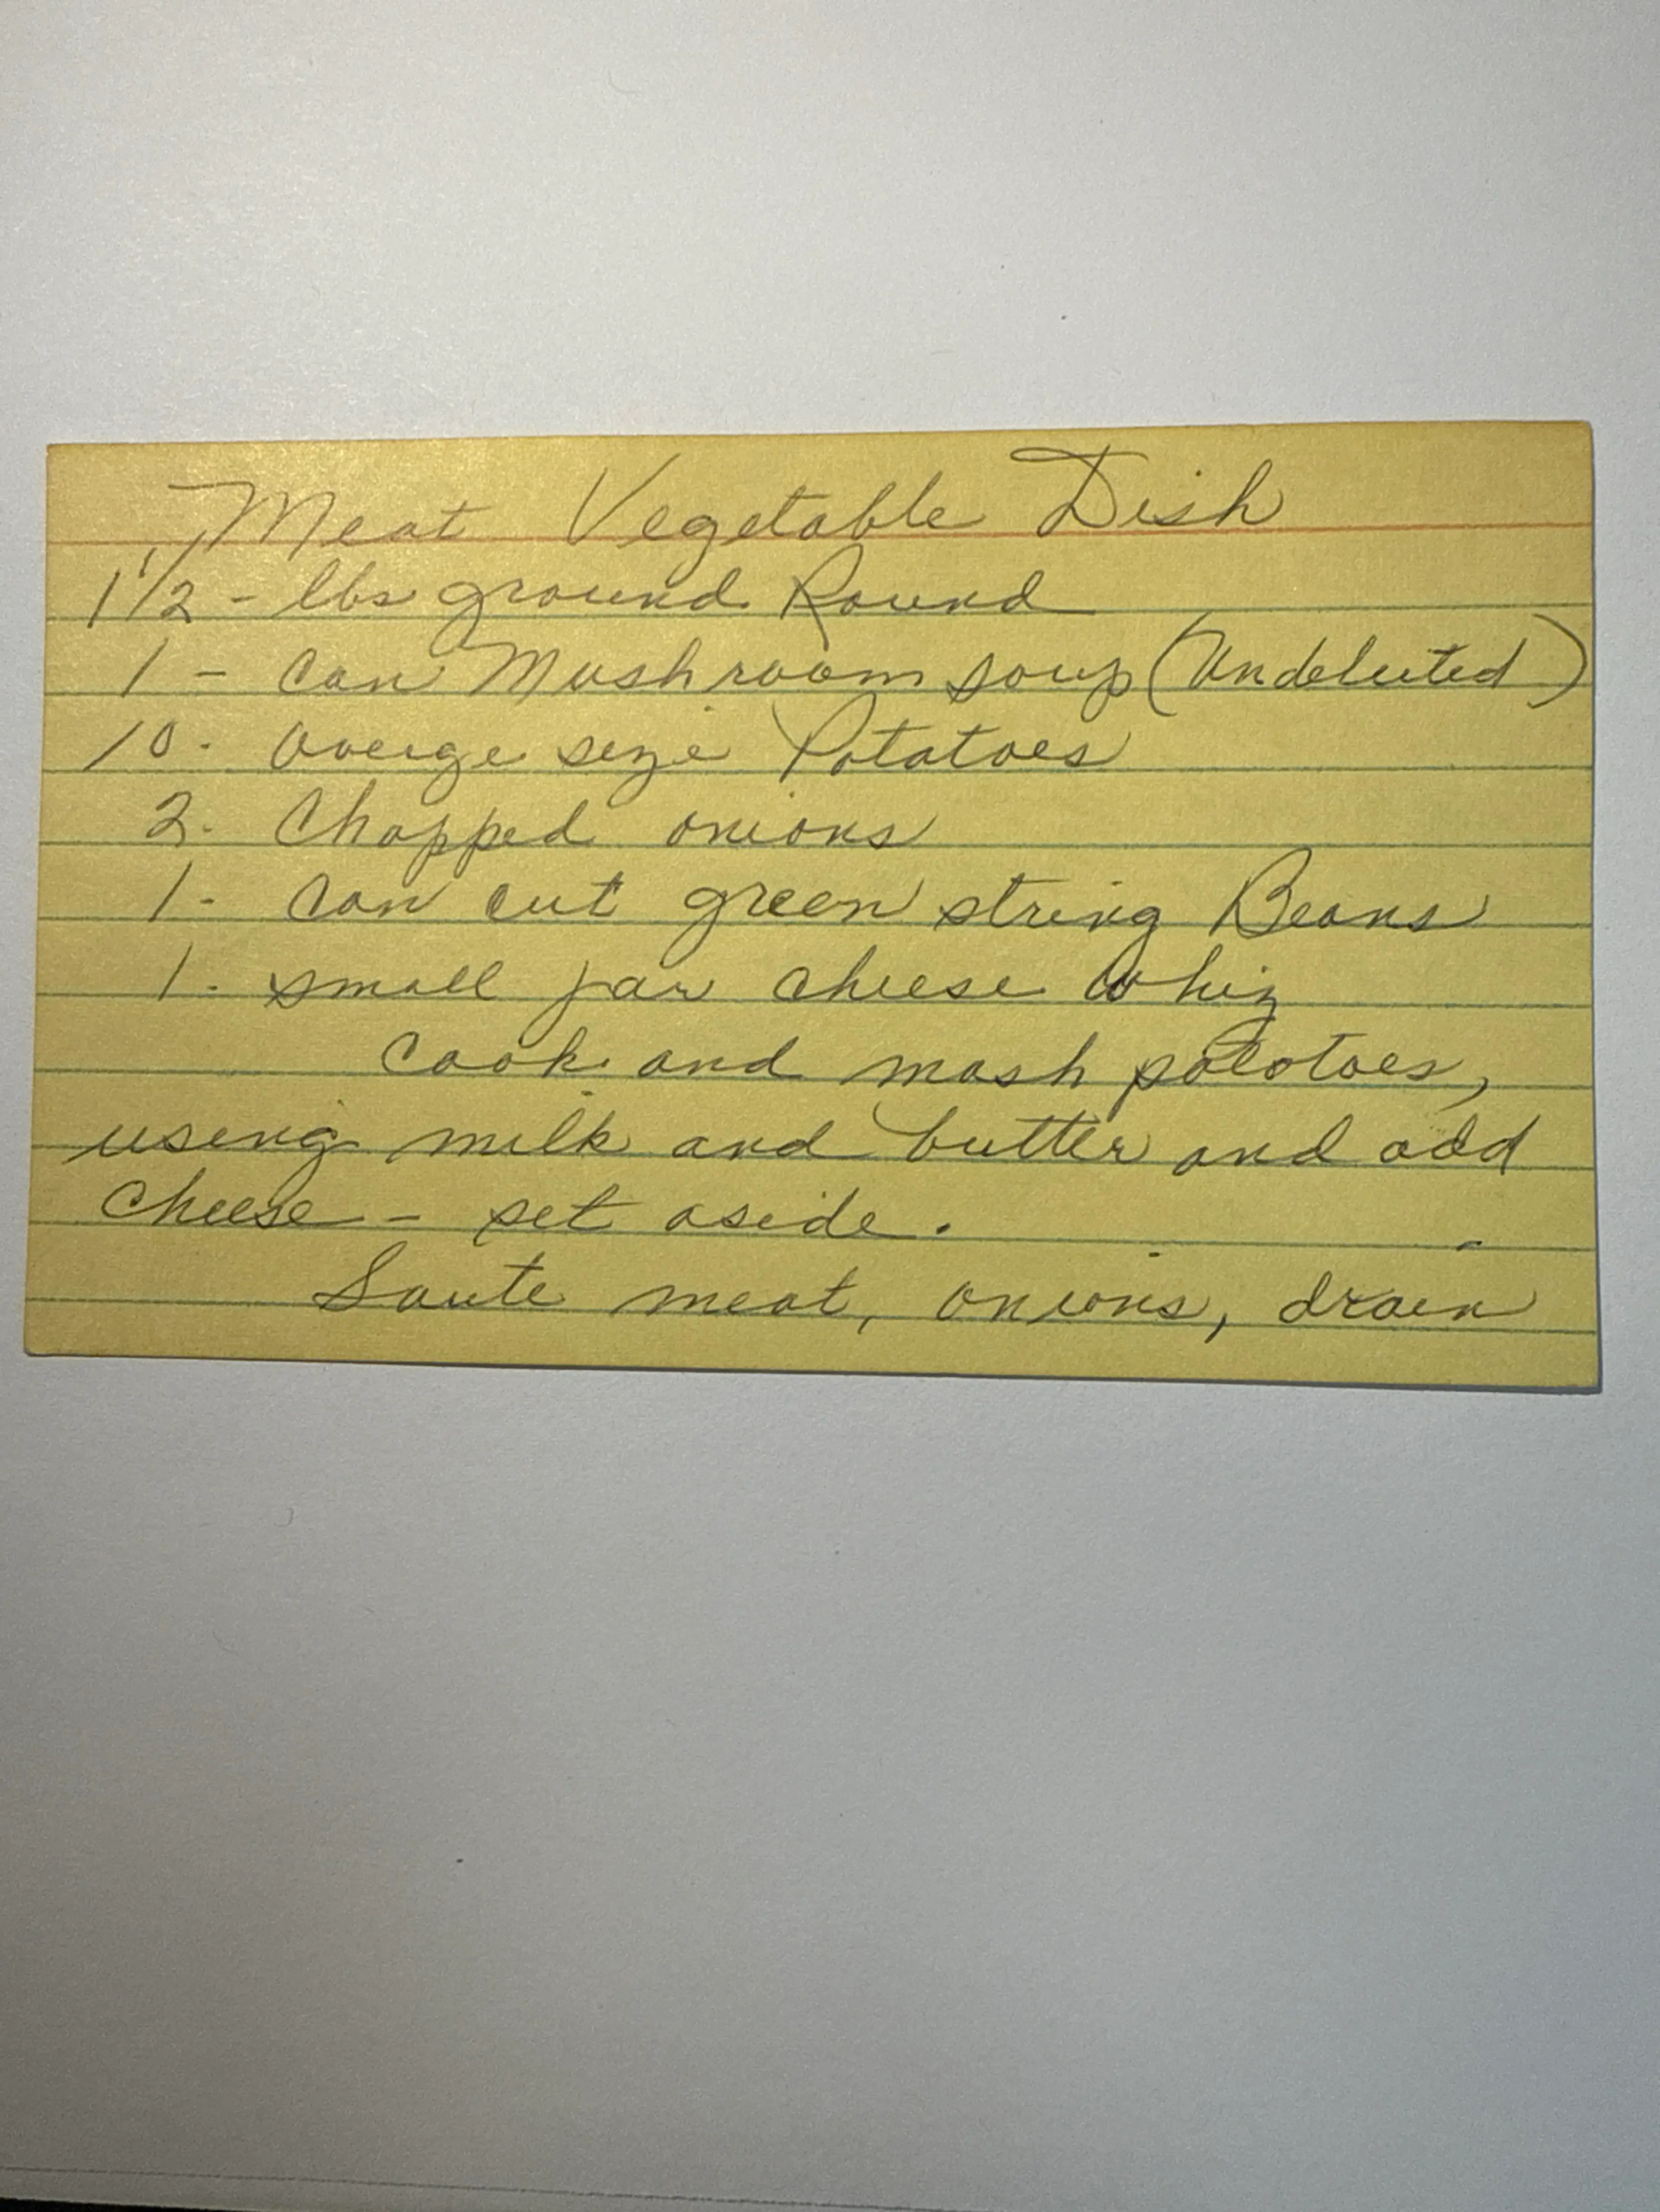 Meat Vegetable Dish
1 1/2 - lbs ground Round
1 - can Mushroom soup (Undeluted)
10. Averge size Potatoes
2. Chopped onions
1. can cut green string Beans
1. small jar cheese whiz
Cook and mash potatoes,
using milk and butter and add
cheese - set aside.
Saute meat, onions, drain